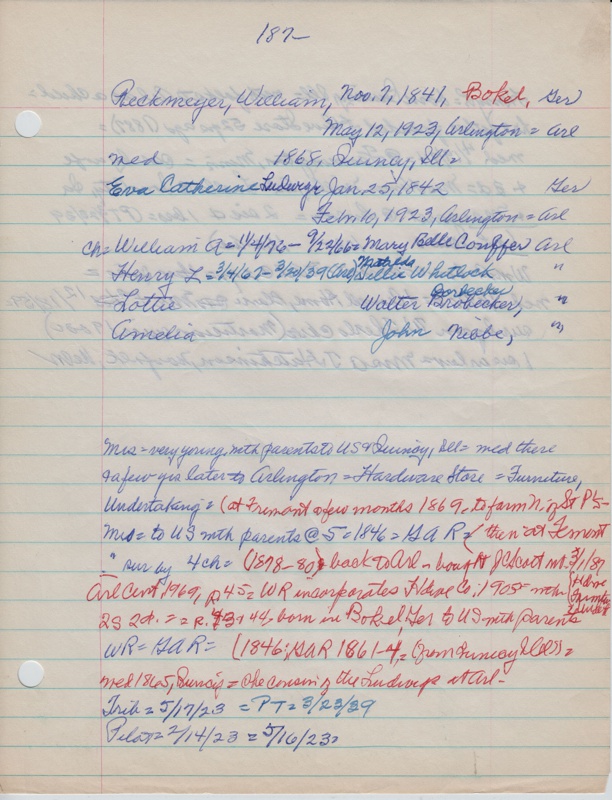 187-
Reckmeyer, William, Nov. 7, 1841, Bokel, Ger
May 12, 1923, Arlington = Arl
med 1868, Quincy, Ill =
Eva Catherine Ludwigs Jan 25, 1842 Ger
Feb. 10, 1923, Arlington = Arl
Ch = William A = 1/4/76 - 9/22/66 = Mary Belle Conffer Arl
Henry L = 3/4/67 - 3/20/39 (Arl) Matilda Tillie Whitlock "
Lottie Walter Brobecker, "
Amelia John Nebbe, "
Mis = very young, mth parents to US & Quincy, Ill = med there
& a few yrs later to Arlington = Hardware Store = Furneture,
Undertaking = (at Fremont a few months 1869, to farm N. of St P 5-
Mrs = to US mth parents @ 5 = 1846 = GAR = (then at Fmont
" sur by 4 ch = (1878-80) back to Arl - bought JC Scott int. 3/1/87
Arl Cent, 1969, p 45 = WR incorporates Hdwe Co; 1905 = mth (Hdwe
2S 2d. = = R. 43 + 44, born in Bokel, Ger to US mth parents
WR = GAR = (1846; GAR 1861-4, = (from Quincy Ills) =
med 1865, Quincy = she cousin of the Ludwigs at Arl -
Trib = 5/17/23 = PT = 3/23/39
Pilot = 2/14/23 = 5/16/23 =